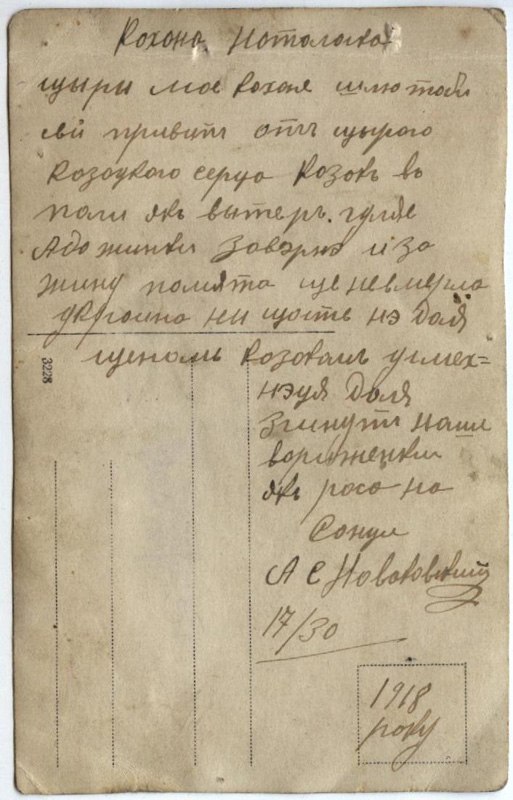 Кохона Потолочка
щыри мое кохая шлю тоби
свй привит отъ щырого
козоцкого серца Козокъ въ
поли якъ вытеръ гуляе
Адо жинки Зовэрнэ и за
жину помята ще невмерла
Украина ни щость нэ доля
щеномъ козокамъ усмех=
нэця Доля
Згинутъ наши
вориженьки
якъ роса на
Сонци
А С Новоковский
17/30
1918
року
3228